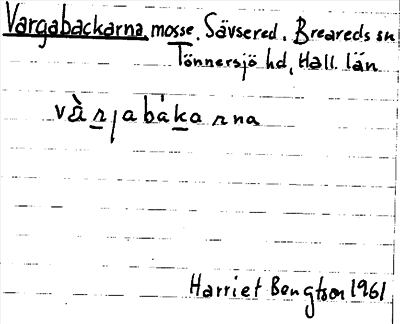 Vargabackarna, mosse. Sävsered. Breareds sn
Tönnersjö hd, Hall. län
và̈rjabákarna
Harriet Bengtson 1961